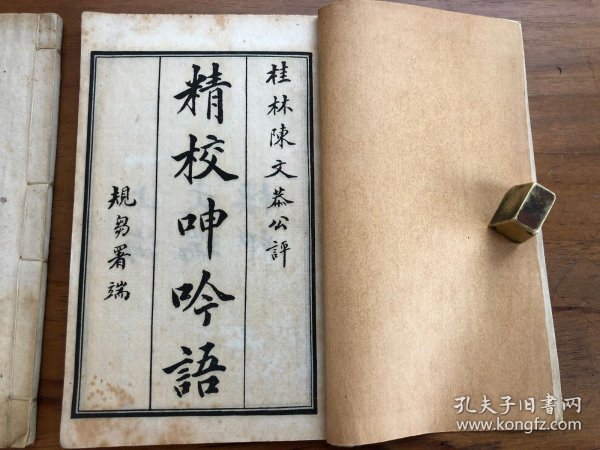 桂林陳文恭公評
精校呻吟語
規芻署端
孔夫子旧书网
www.kongfz.com